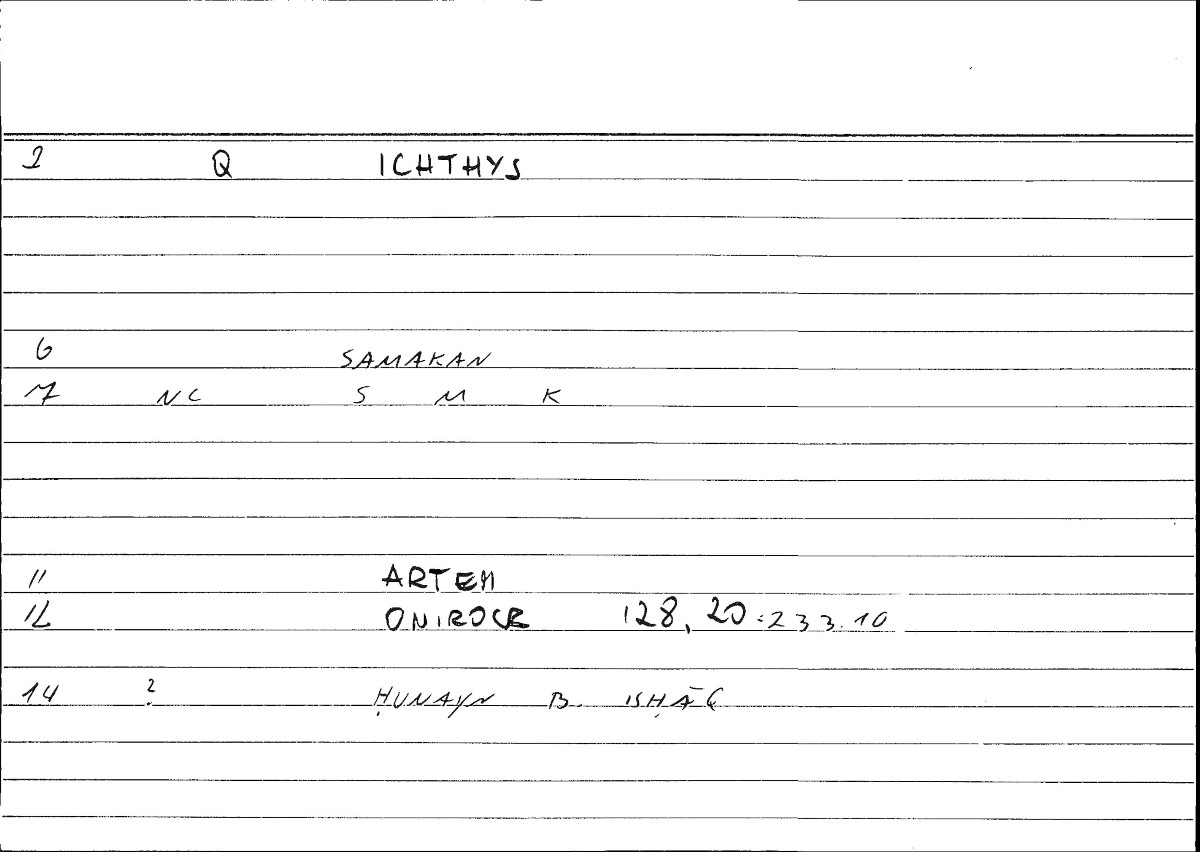 2 Q ICHTHYS
6 SAMAKAN
7 NC S M K
11 ARTEM
12 ONIROCR 128, 20 : 233.10
14 ? ḤUNAYN B. ISḤĀQ